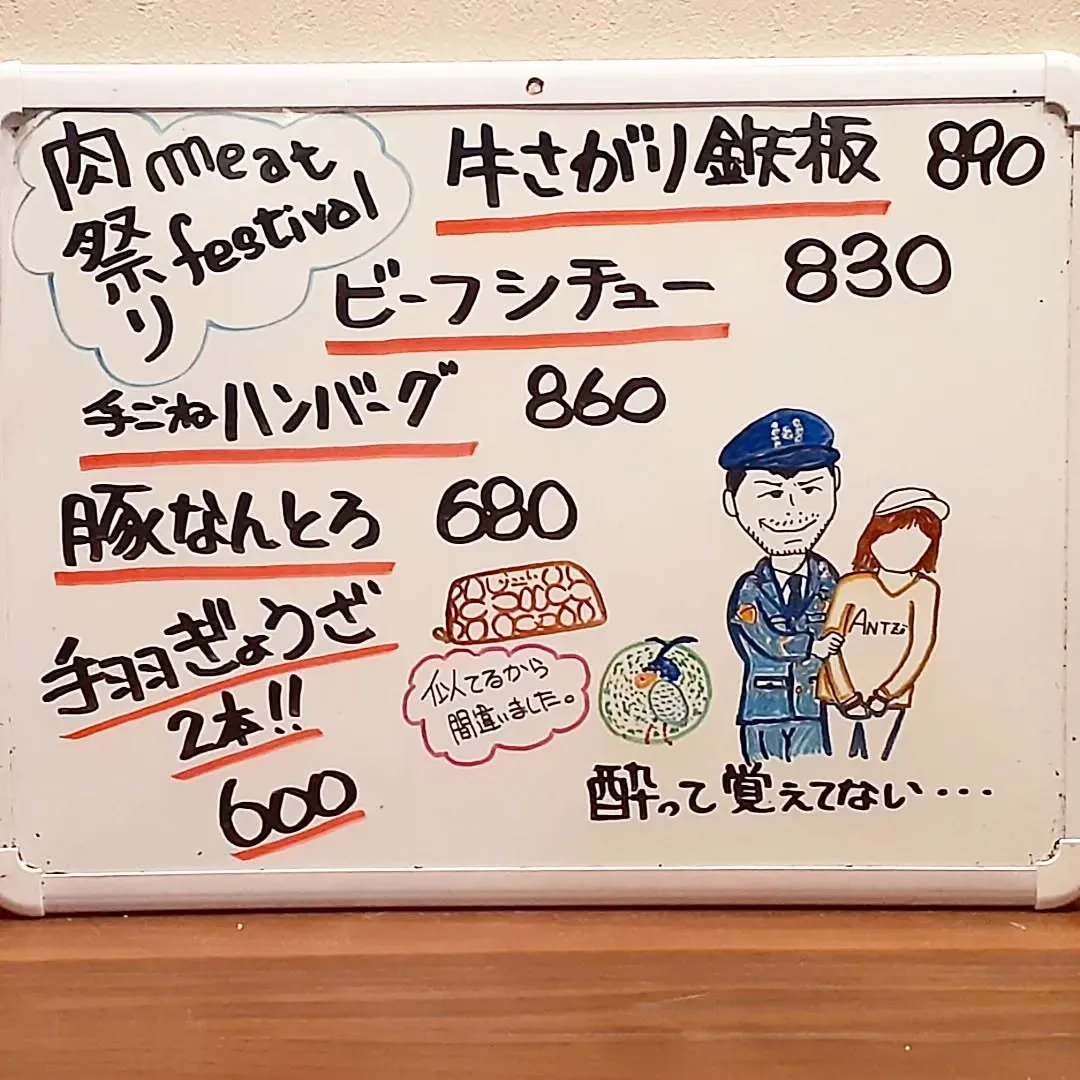 肉 meat
祭り festival
牛さがり鉄板 890
ビーフシチュー 830
手ごねハンバーグ 860
豚なんとろ 680
手羽ぎょうざ
2本!!
600
似てるから
間違いました。
ANTZ
酔って覚えてない・・・